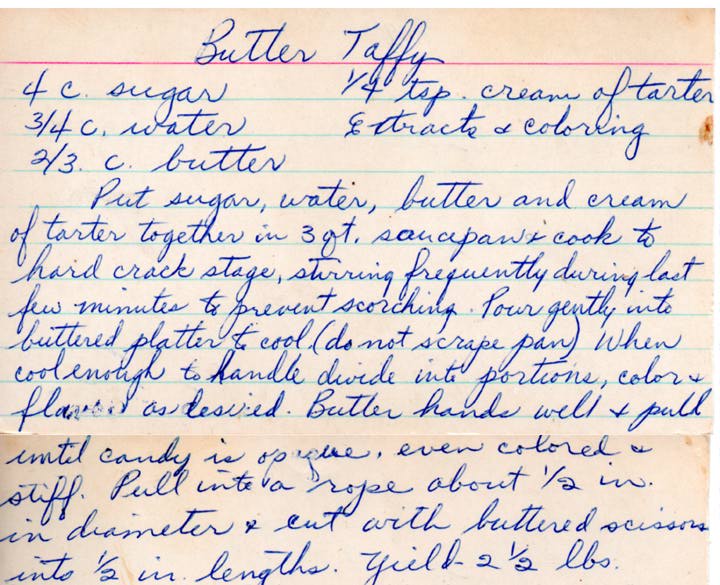 Butter Taffy
4 c. sugar 1/4 tsp. cream of tarter
3/4 c. water Extracts & coloring
2/3. c. butter
Put sugar, water, butter and cream
of tarter together in 3 qt. saucepan & cook to
hard crack stage, stirring frequently during last
few minutes to prevent scorching. Pour gently into
buttered platter to cool (do not scrape pan) When
cool enough to handle divide into portions, color &
flavor as desired. Butter hands well & pull
until candy is opaque, even colored &
stiff. Pull into a rope about 1/2 in.
in diameter & cut with buttered scissors
into 1/2 in. lengths. Yield - 2 1/2 lbs.